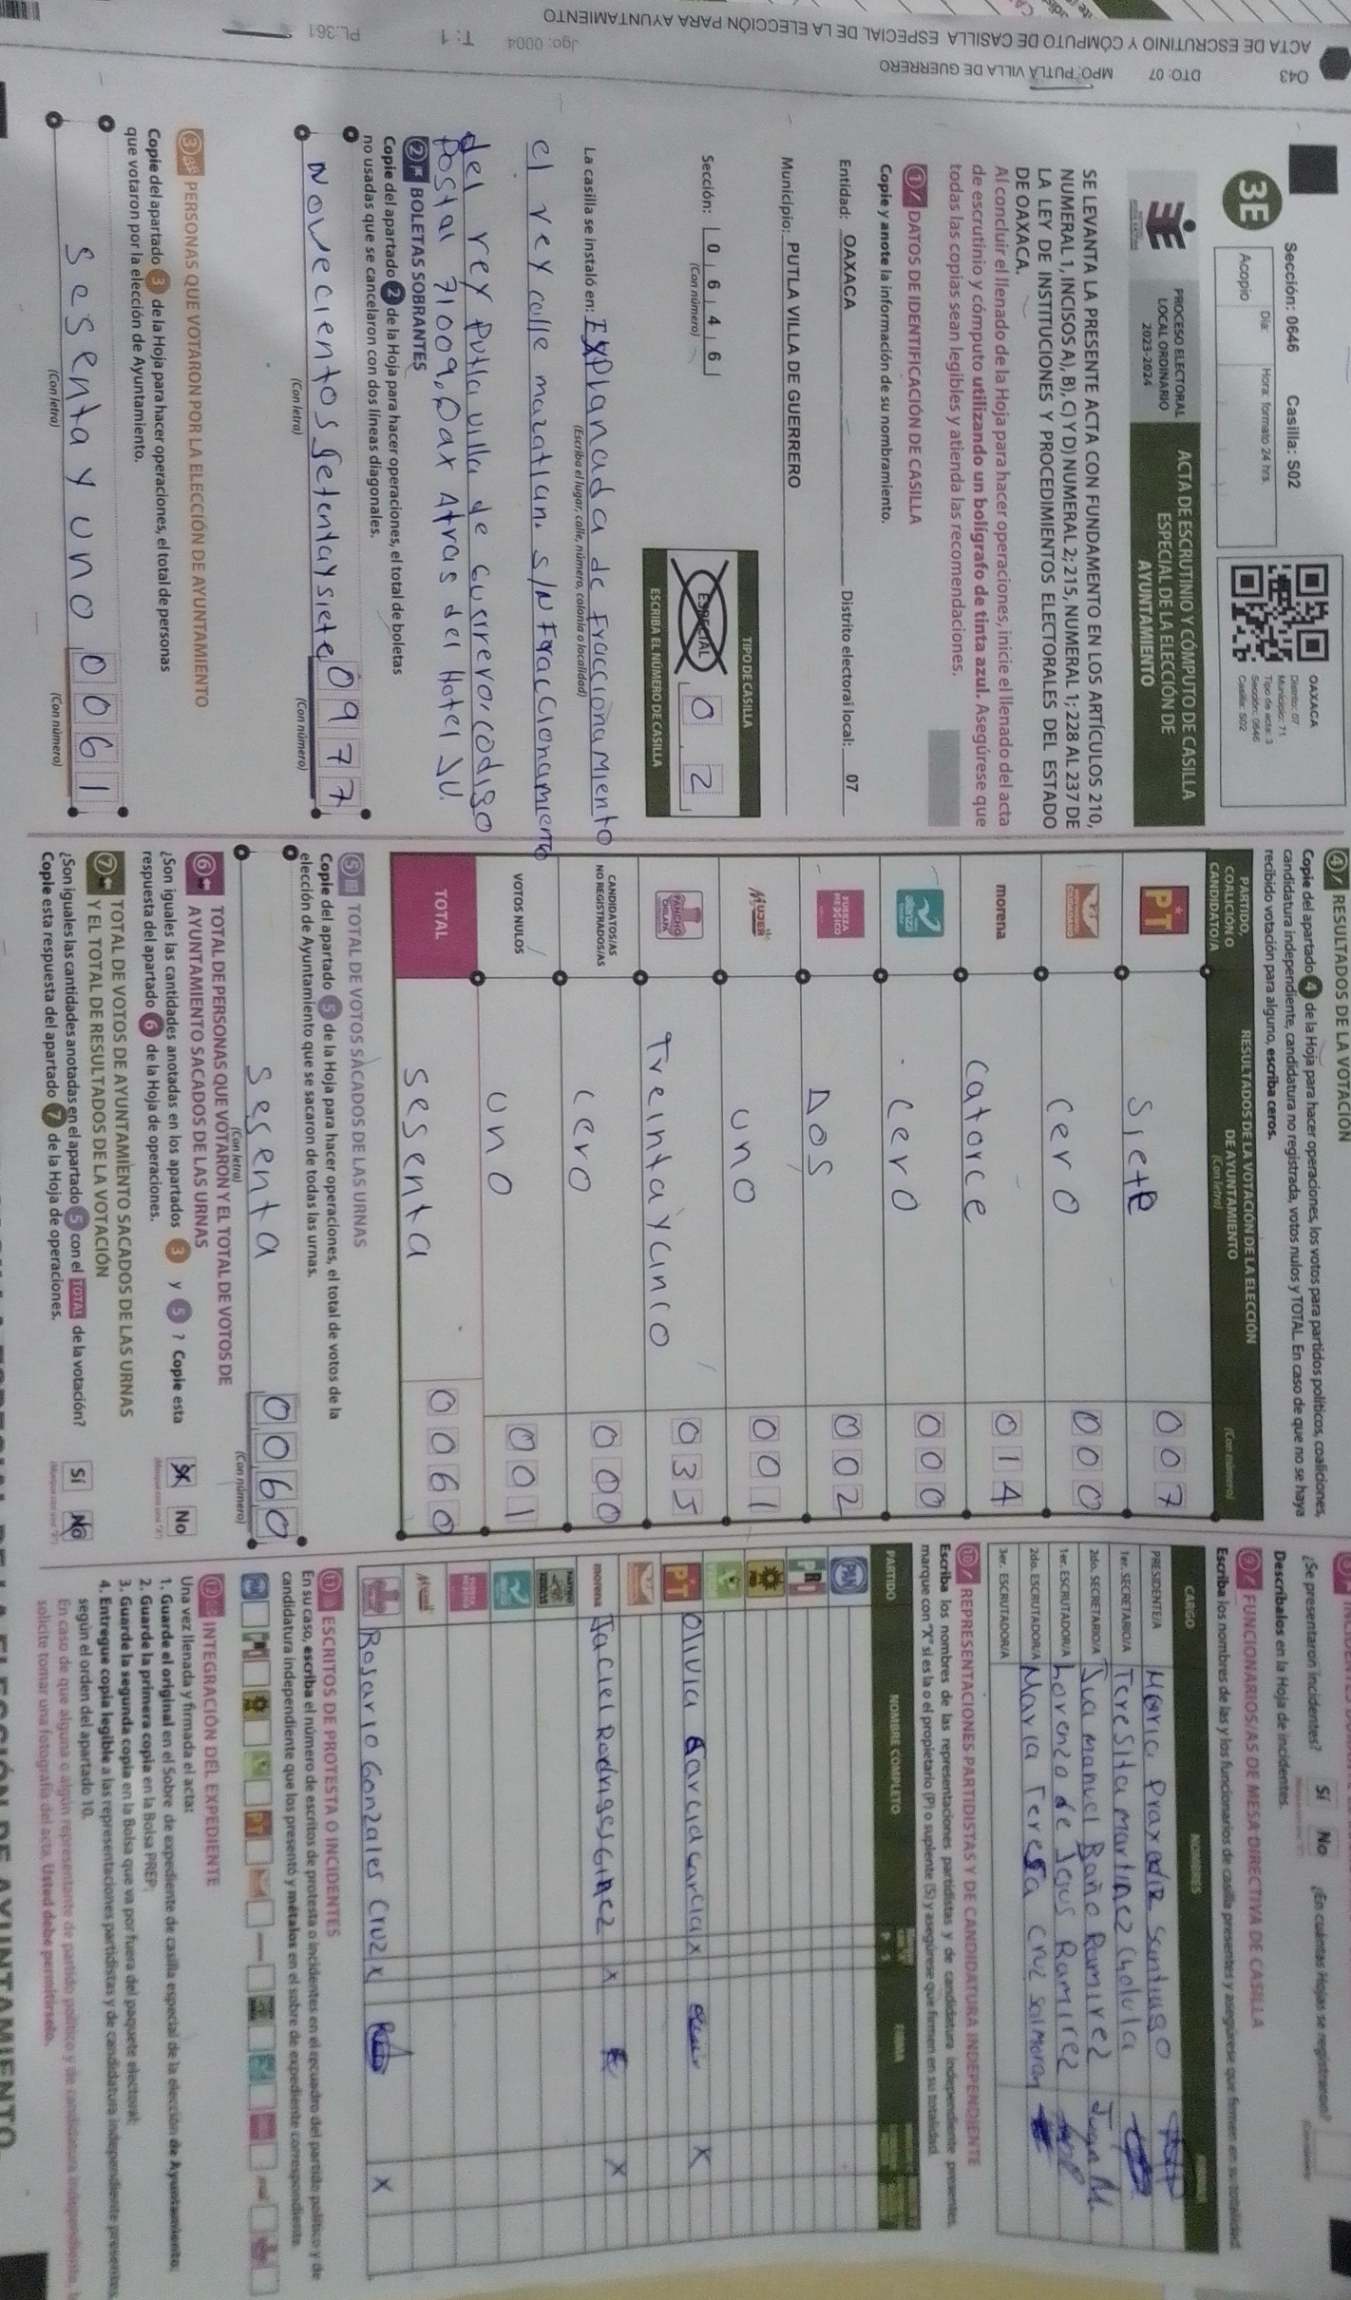 ACTA DE ESCRUTINIO Y CÓMPUTO DE CASILLA ESPECIAL DE LA ELECCIÓN PARA AYUNTAMIENTO
043 DTO: 07 MPO: PUTLA VILLA DE GUERRERO Jgo: 0004 T: 1 PL.361
Sección: 0646 Casilla: S02
3E
Día: Hora: formato 24 hrs.
Acopio
OAXACA
Distrito: 07
Municipio: 71
Tipo de acta: 3
Sección: 0646
Casilla: S02
PROCESO ELECTORAL
LOCAL ORDINARIO
2023-2024
ACTA DE ESCRUTINIO Y CÓMPUTO DE CASILLA
ESPECIAL DE LA ELECCIÓN DE
AYUNTAMIENTO
SE LEVANTA LA PRESENTE ACTA CON FUNDAMENTO EN LOS ARTÍCULOS 210,
NUMERAL 1, INCISOS A), B), C) Y D) NUMERAL 2; 215, NUMERAL 1; 228 AL 237 DE
LA LEY DE INSTITUCIONES Y PROCEDIMIENTOS ELECTORALES DEL ESTADO
DE OAXACA.
Al concluir el llenado de la Hoja para hacer operaciones, inicie el llenado del acta
de escrutinio y cómputo utilizando un bolígrafo de tinta azul. Asegúrese que
todas las copias sean legibles y atienda las recomendaciones.
1 DATOS DE IDENTIFICACIÓN DE CASILLA
Copie y anote la información de su nombramiento.
Entidad: OAXACA Distrito electoral local: 07
Municipio: PUTLA VILLA DE GUERRERO
Sección: 0 6 4 6
(Con número)
TIPO DE CASILLA
ESPECIAL 0 2
ESCRIBA EL NÚMERO DE CASILLA
La casilla se instaló en: Explanada de Fraccionamiento
(Escriba el lugar, calle, número, colonia o localidad)
el rey calle mazatlan. S/N Fraccionamiento
del rey Putla, villa de Guerrero, codigo
Postal 71009, Oax Atras del Hotel JV.
2 BOLETAS SOBRANTES
Copie del apartado 2 de la Hoja para hacer operaciones, el total de boletas
no usadas que se cancelaron con dos líneas diagonales.
Novecientos Setenta y siete 0977
(Con letra) (Con número)
3 PERSONAS QUE VOTARON POR LA ELECCIÓN DE AYUNTAMIENTO
Copie del apartado 3 de la Hoja para hacer operaciones, el total de personas
que votaron por la elección de Ayuntamiento.
sesenta y uno 0061
(Con letra) (Con número)
4 RESULTADOS DE LA VOTACIÓN
Copie del apartado 4 de la Hoja para hacer operaciones, los votos para partidos políticos, coaliciones,
candidatura independiente, candidatura no registrada, votos nulos y TOTAL. En caso de que no se haya
recibido votación para alguno, escriba ceros.
PARTIDO,
COALICIÓN O
CANDIDATO/A
RESULTADOS DE LA VOTACIÓN DE LA ELECCIÓN
DE AYUNTAMIENTO
(Con letra) (Con número)
PT siete 007
cero 000
morena catorce 014
cero 000
FUERZA MÉXICO Dos 002
MUJER uno 001
PANCHO treinta y cinco 035
CANDIDATOS/AS
NO REGISTRADOS/AS cero 000
VOTOS NULOS uno 001
TOTAL sesenta 0060
5 TOTAL DE VOTOS SACADOS DE LAS URNAS
Copie del apartado 5 de la Hoja para hacer operaciones, el total de votos de la
elección de Ayuntamiento que se sacaron de todas las urnas.
sesenta 0060
(Con letra) (Con número)
6 TOTAL DE PERSONAS QUE VOTARON Y EL TOTAL DE VOTOS DE
AYUNTAMIENTO SACADOS DE LAS URNAS
¿Son iguales las cantidades anotadas en los apartados 3 y 5? Copie esta
respuesta del apartado 6 de la Hoja de operaciones.
Sí No
7 TOTAL DE VOTOS DE AYUNTAMIENTO SACADOS DE LAS URNAS
Y EL TOTAL DE RESULTADOS DE LA VOTACIÓN
¿Son iguales las cantidades anotadas en el apartado 5 con el TOTAL de la votación?
Copie esta respuesta del apartado 7 de la Hoja de operaciones.
Sí No
¿Se presentaron incidentes? Sí No ¿En cuántas Hojas se registraron?
Descríbalos en la Hoja de incidentes.
9 FUNCIONARIOS/AS DE MESA DIRECTIVA DE CASILLA
Escriba los nombres de las y los funcionarios de casilla presentes y asegúrese que firmen en su totalidad.
CARGO NOMBRES
PRESIDENTE/A Maria Praxadiz Santiago
1er. SECRETARIO/A Teresita Martinez Cholula
2do. SECRETARIO/A Manuel Baño Ramirez
1er. ESCRUTADOR/A Lorenzo de Jesus Ramirez
2do. ESCRUTADOR/A Maria Teresa Cruz Salmoran
3er. ESCRUTADOR/A
10 REPRESENTACIONES PARTIDISTAS Y DE CANDIDATURA INDEPENDIENTE
Escriba los nombres de las representaciones partidistas y de candidatura independiente presentes,
marque con "X" si es la o el propietario (P) o suplente (S) y asegúrese que firmen en su totalidad.
PARTIDO NOMBRE COMPLETO P S FIRMA
PAN
PRI
PRD
PT Olivia Garcia Garcia x x
morena Jaciel Rodriges Ginez x x
Rosario Gonzales Cruz x x
11 ESCRITOS DE PROTESTA O INCIDENTES
En su caso, escriba el número de escritos de protesta o incidentes en el recuadro del partido político y de
candidatura independiente que los presentó y métalos en el sobre de expediente correspondiente.
12 INTEGRACIÓN DEL EXPEDIENTE
Una vez llenada y firmada el acta:
1. Guarde el original en el Sobre de expediente de casilla especial de la elección de Ayuntamiento;
2. Guarde la primera copia en la Bolsa PREP;
3. Guarde la segunda copia en la Bolsa que va por fuera del paquete electoral;
4. Entregue copia legible a las representaciones partidistas y de candidatura independiente presentes,
según el orden del apartado 10.
En caso de que alguna o algún representante de partido político y de candidatura independiente,
solicite tomar una fotografía del acta, Usted debe permitírselo.